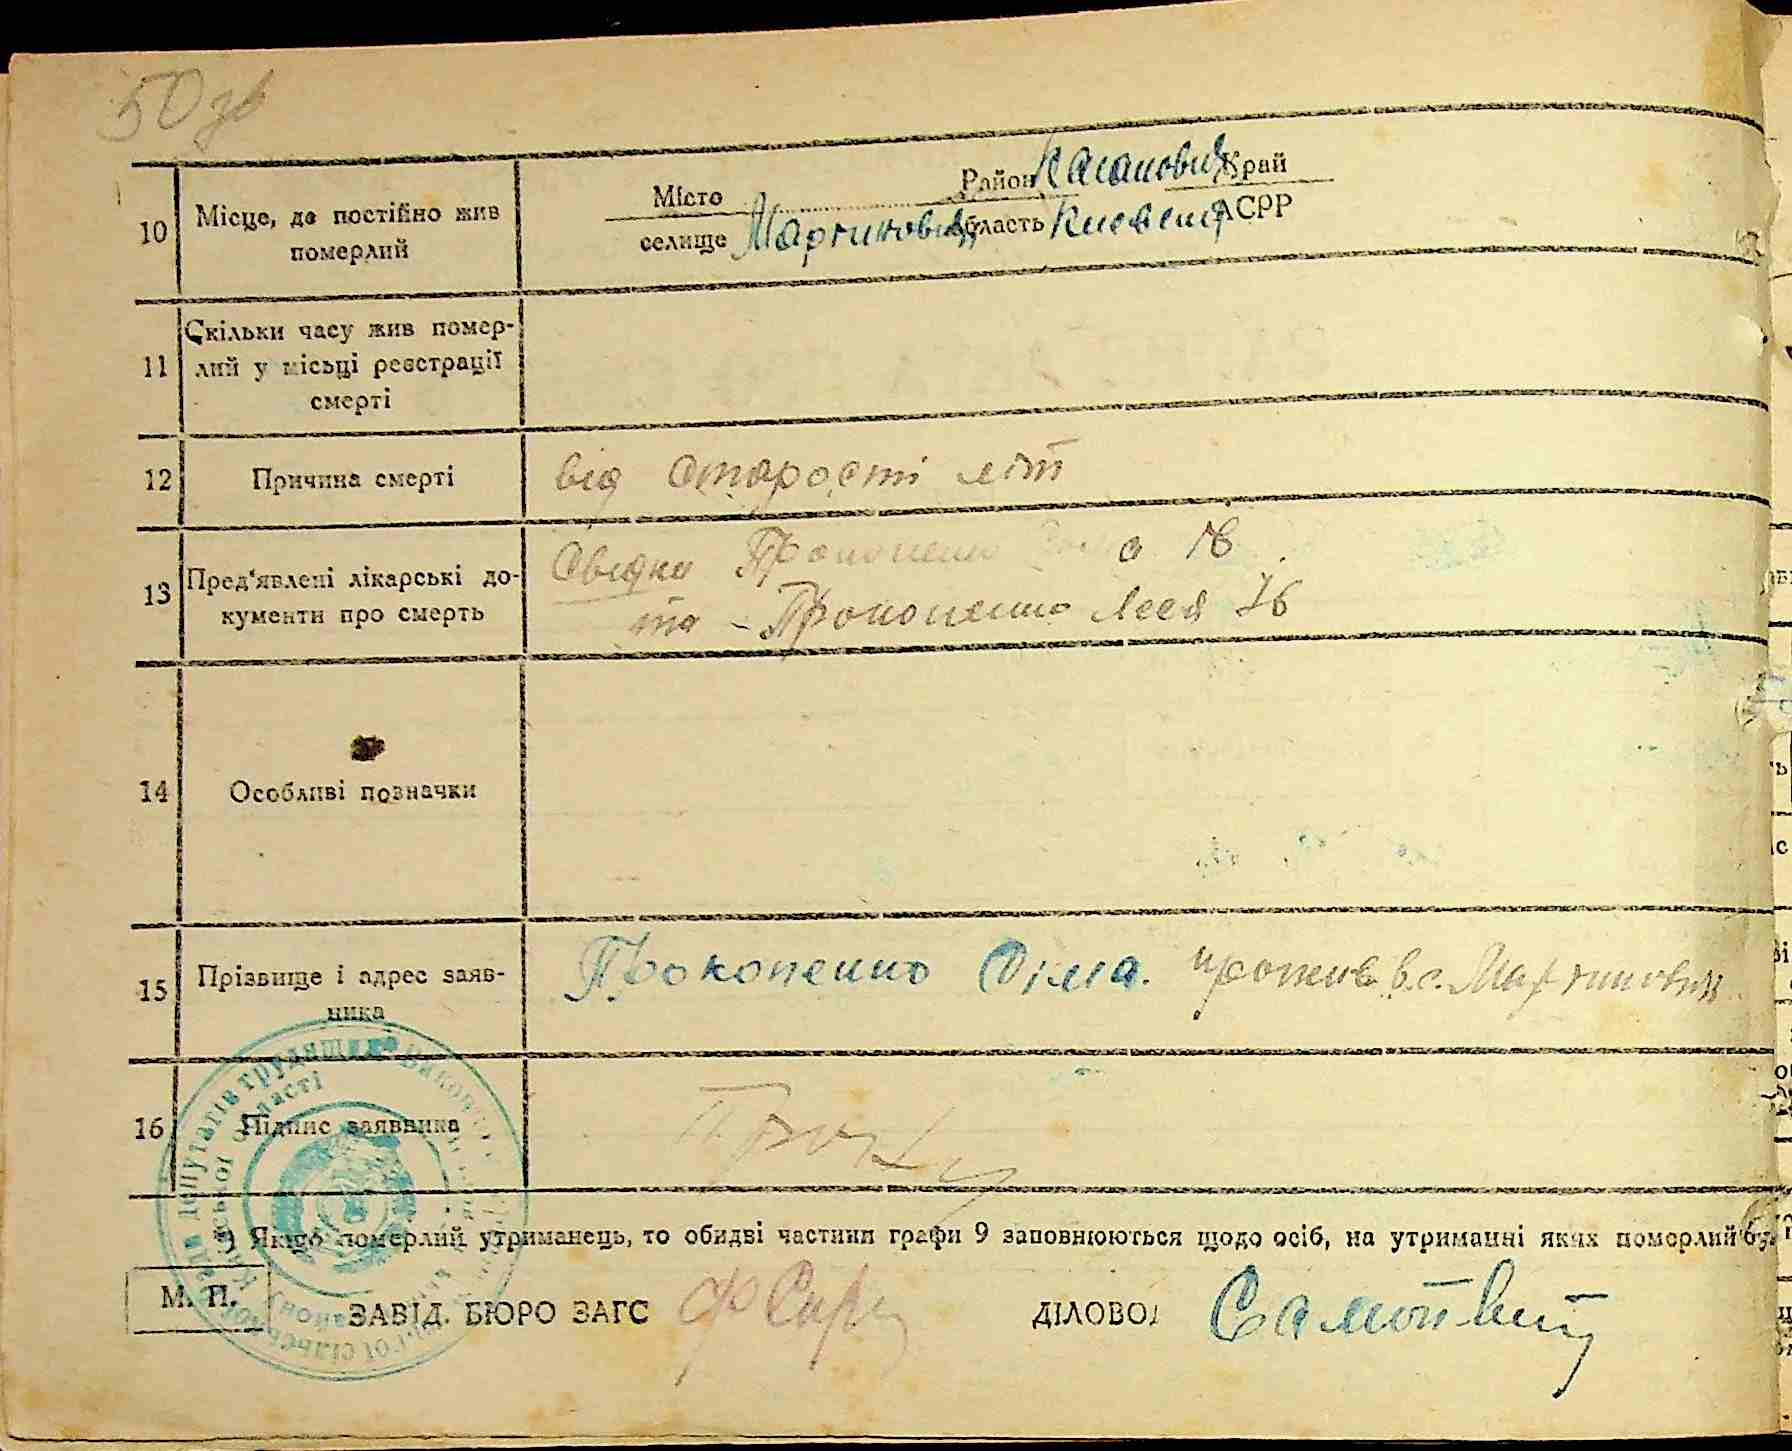 50 зв
10 Місце, де постійно жив померлий
Місто Район Каганович Край
селище Мартинович область Киевська АСРР
11 Скільки часу жив помер-
лий у місьці реєстрації
смерті
12 Причина смерті від старости літ
13 Пред'явлені лікарські до-
кументи про смерть
Свідки Прокопенко
та - Прокопенко Леся 76
14 Особливі позначки
15 Прізвище і адрес заяв-
ника
Прокопенко Сіма. прожив. в с. Мартинович
16 Підпис заявника
Якщо померлий утриманець, то обидві частини графи 9 заповнюються щодо осіб, на утриманні яких померлий
М. П. ЗАВІД. БЮРО ЗАГС ДІЛОВОД